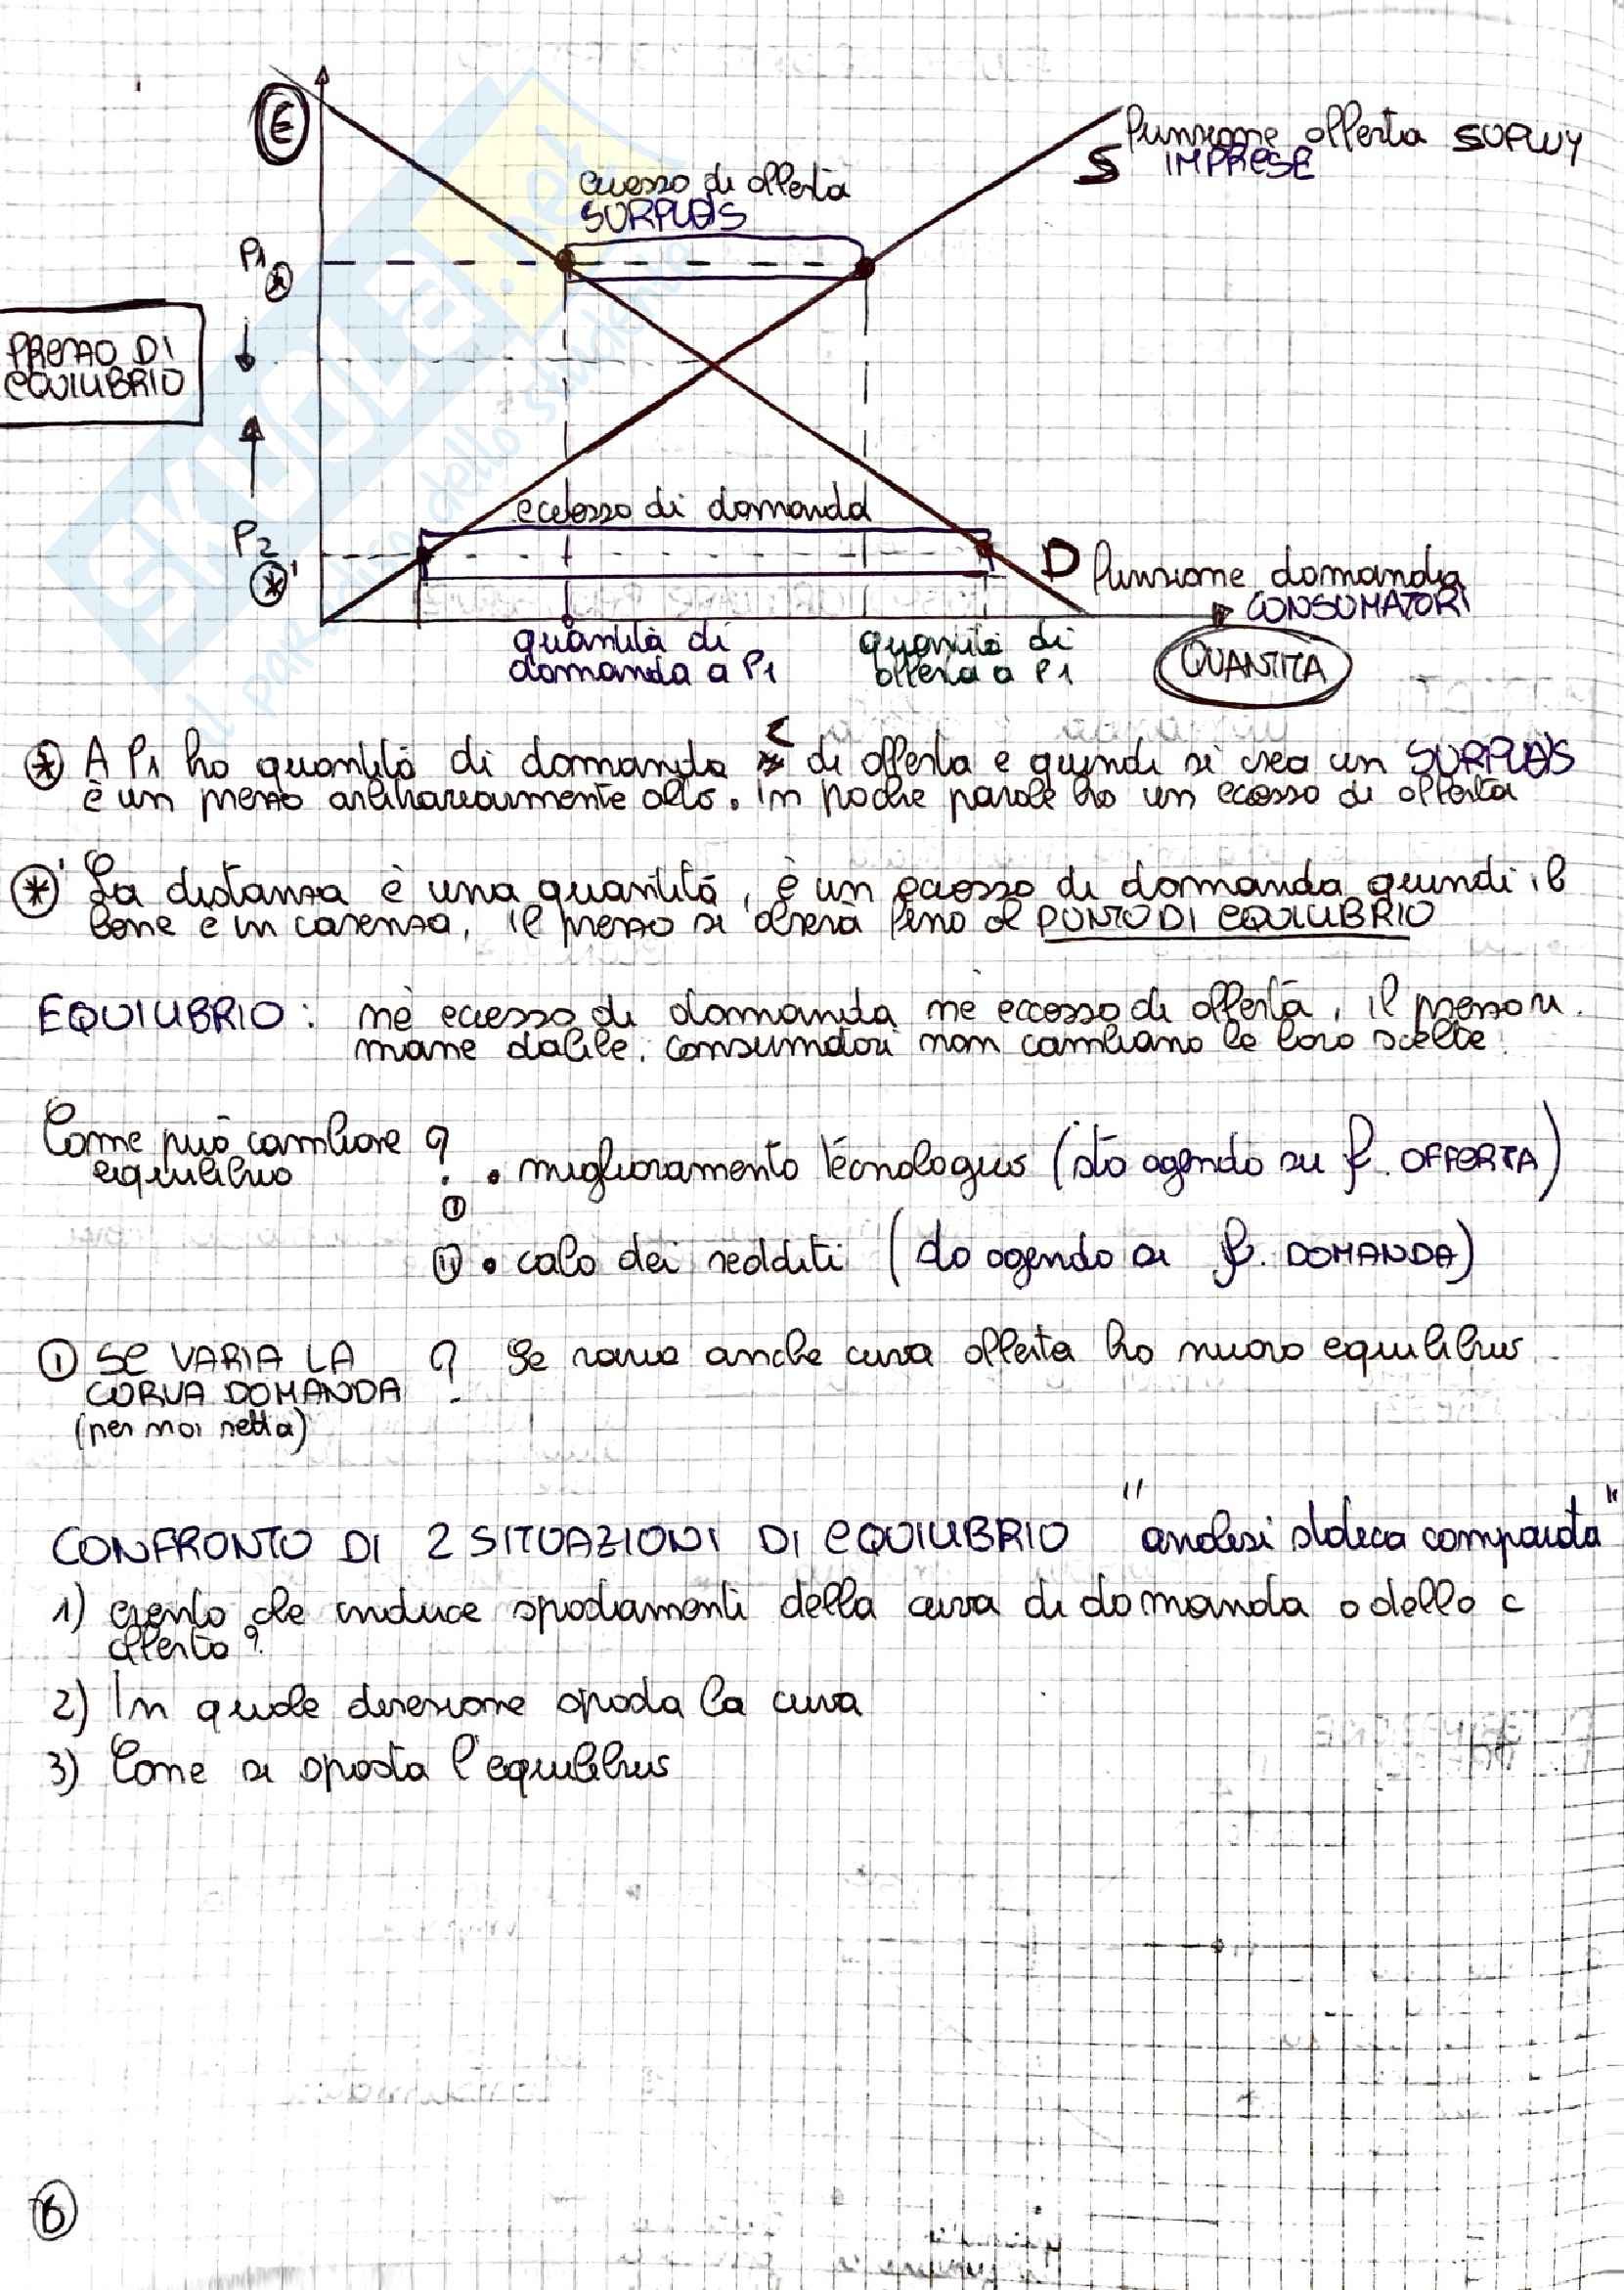 €
funzione offerta SUPPLY
S IMPRESE
eccesso di offerta
SURPLUS
P1
*
PREZZO DI
EQUILIBRIO
eccesso di domanda
P2
*'
D funzione domanda
CONSUMATORI
quantità di
domanda a P1
quantità di
offerta a P1
QUANTITÀ
SKUOLA.net
il paradiso dello studente
* A P1 ho quantità di domanda < di offerta e quindi si crea un SURPLUS
è un prezzo arbitrariamente alto. In poche parole ho un eccesso di offerta
*' La distanza è una quantità, è un eccesso di domanda quindi il
bene è in carenza, il prezzo si alzerà fino al PUNTO DI EQUILIBRIO
EQUILIBRIO: nè eccesso di domanda nè eccesso di offerta, il prezzo ri
mane stabile, consumatori non cambiano le loro scelte.
Come può cambiare ?
equilibrio
① • miglioramento tecnologico (sto agendo su f. OFFERTA)
② • calo dei redditi (sto agendo su f. DOMANDA)
① SE VARIA LA ? Se varia anche curva offerta ho nuovo equilibrio
CURVA DOMANDA
(per noi retta)
CONFRONTO DI 2 SITUAZIONI DI EQUILIBRIO "analisi statica comparata"
1) evento che induce spostamenti della curva di domanda o della c
offerta?
2) In quale direzione sposta la curva
3) Come si sposta l'equilibrio
6